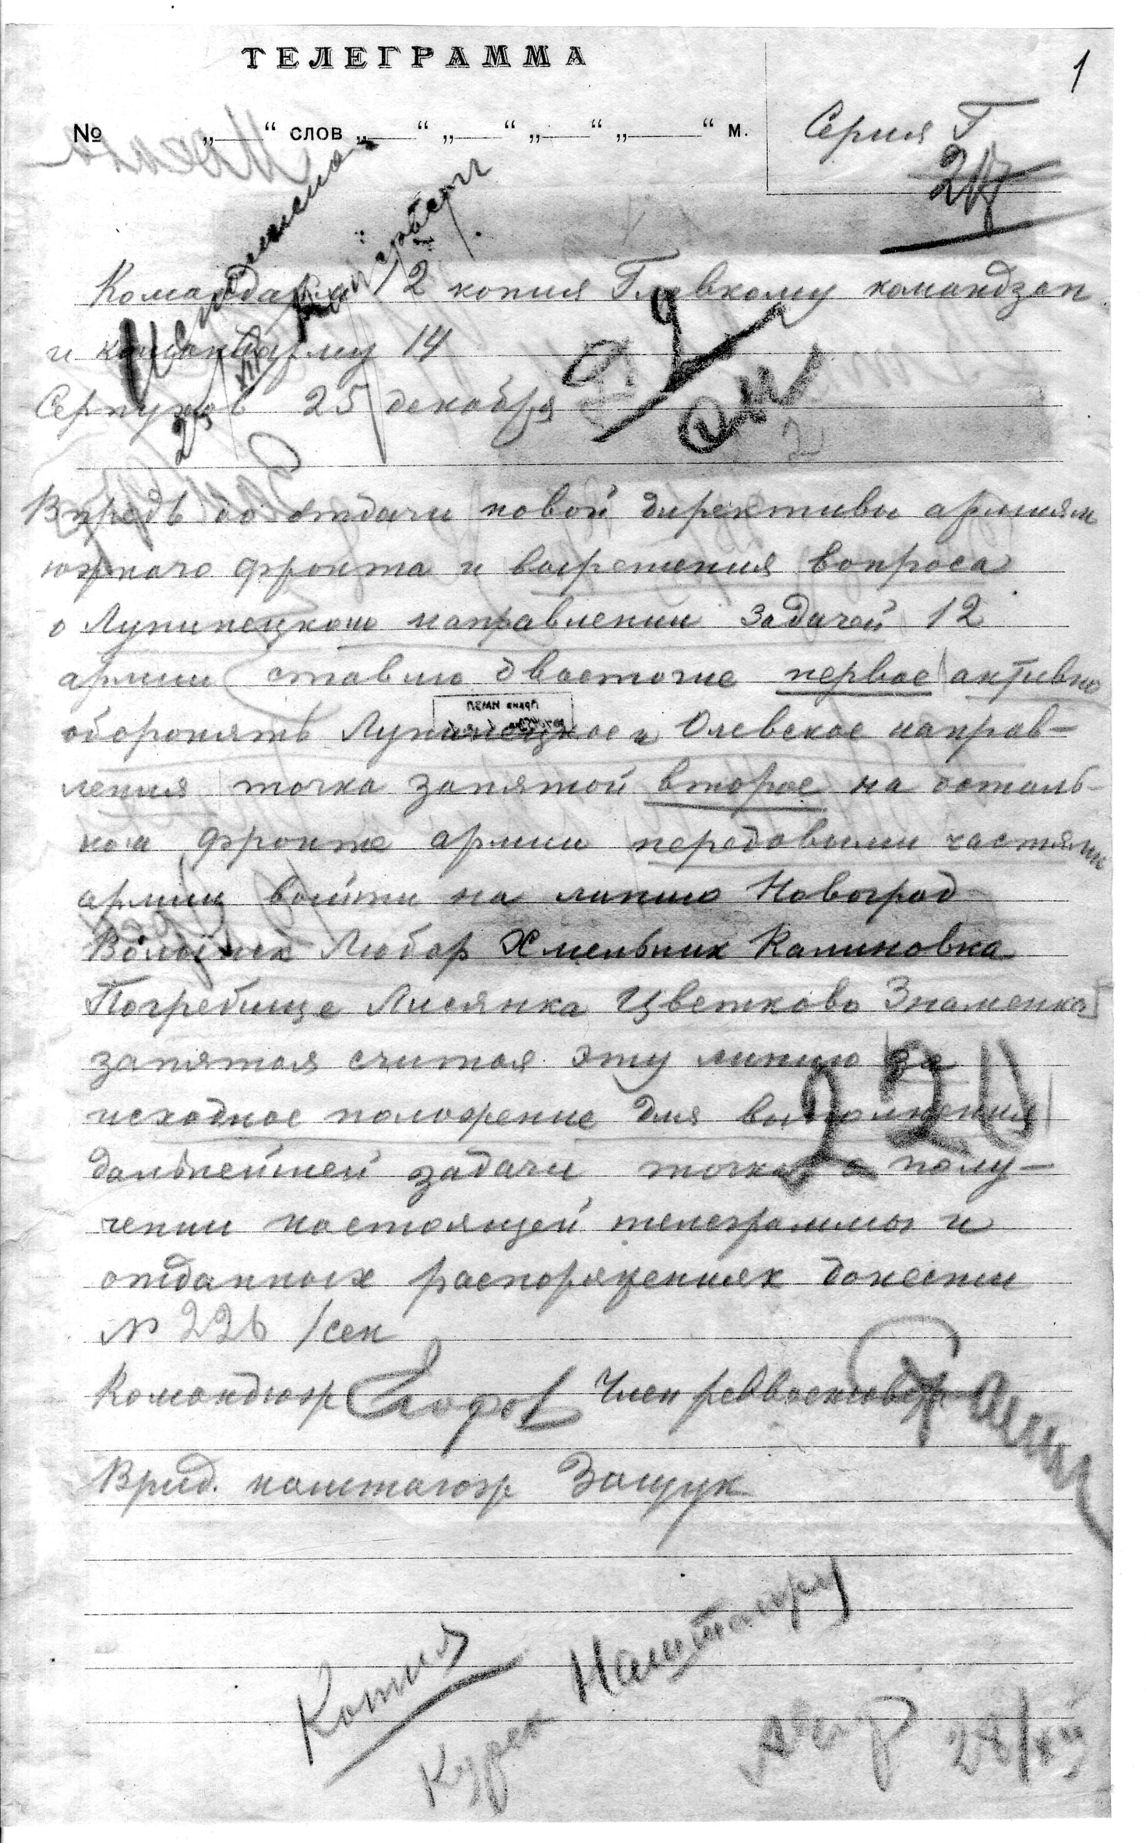 ТЕЛЕГРАММА
1
№ „ “ слов „ “ „ “ „ “ „ “ м.
Серия Г
Командарм 12 копия Главкому командзап
и командарму 14
Серпухов 25 декабря
Впредь до отдачи новой директивы армиям
южного фронта и выяснения вопроса
о Лунинецком направлении задачей 12
армии ставлю двоеточие первое активно
оборонять Лунинецкое и Олевское направ-
ления точка запятой второе на осталь-
ном фронте армии передовыми частями
армии выйти на линию Новоград
Волынск Любар Хмельник Калиновка
Погребище Лисянка Цветково Знаменка
запятая считая эту линию за
исходное положение для выполнения
дальнейшей задачи точка о полу-
чении настоящей телеграммы и
отданных распоряжениях донести
№ 226 /сек
220
Командюж Егоров Член реввоенсовета Сталин
Врид. наштаюж Защук
Копия
Наштарму
28/XII